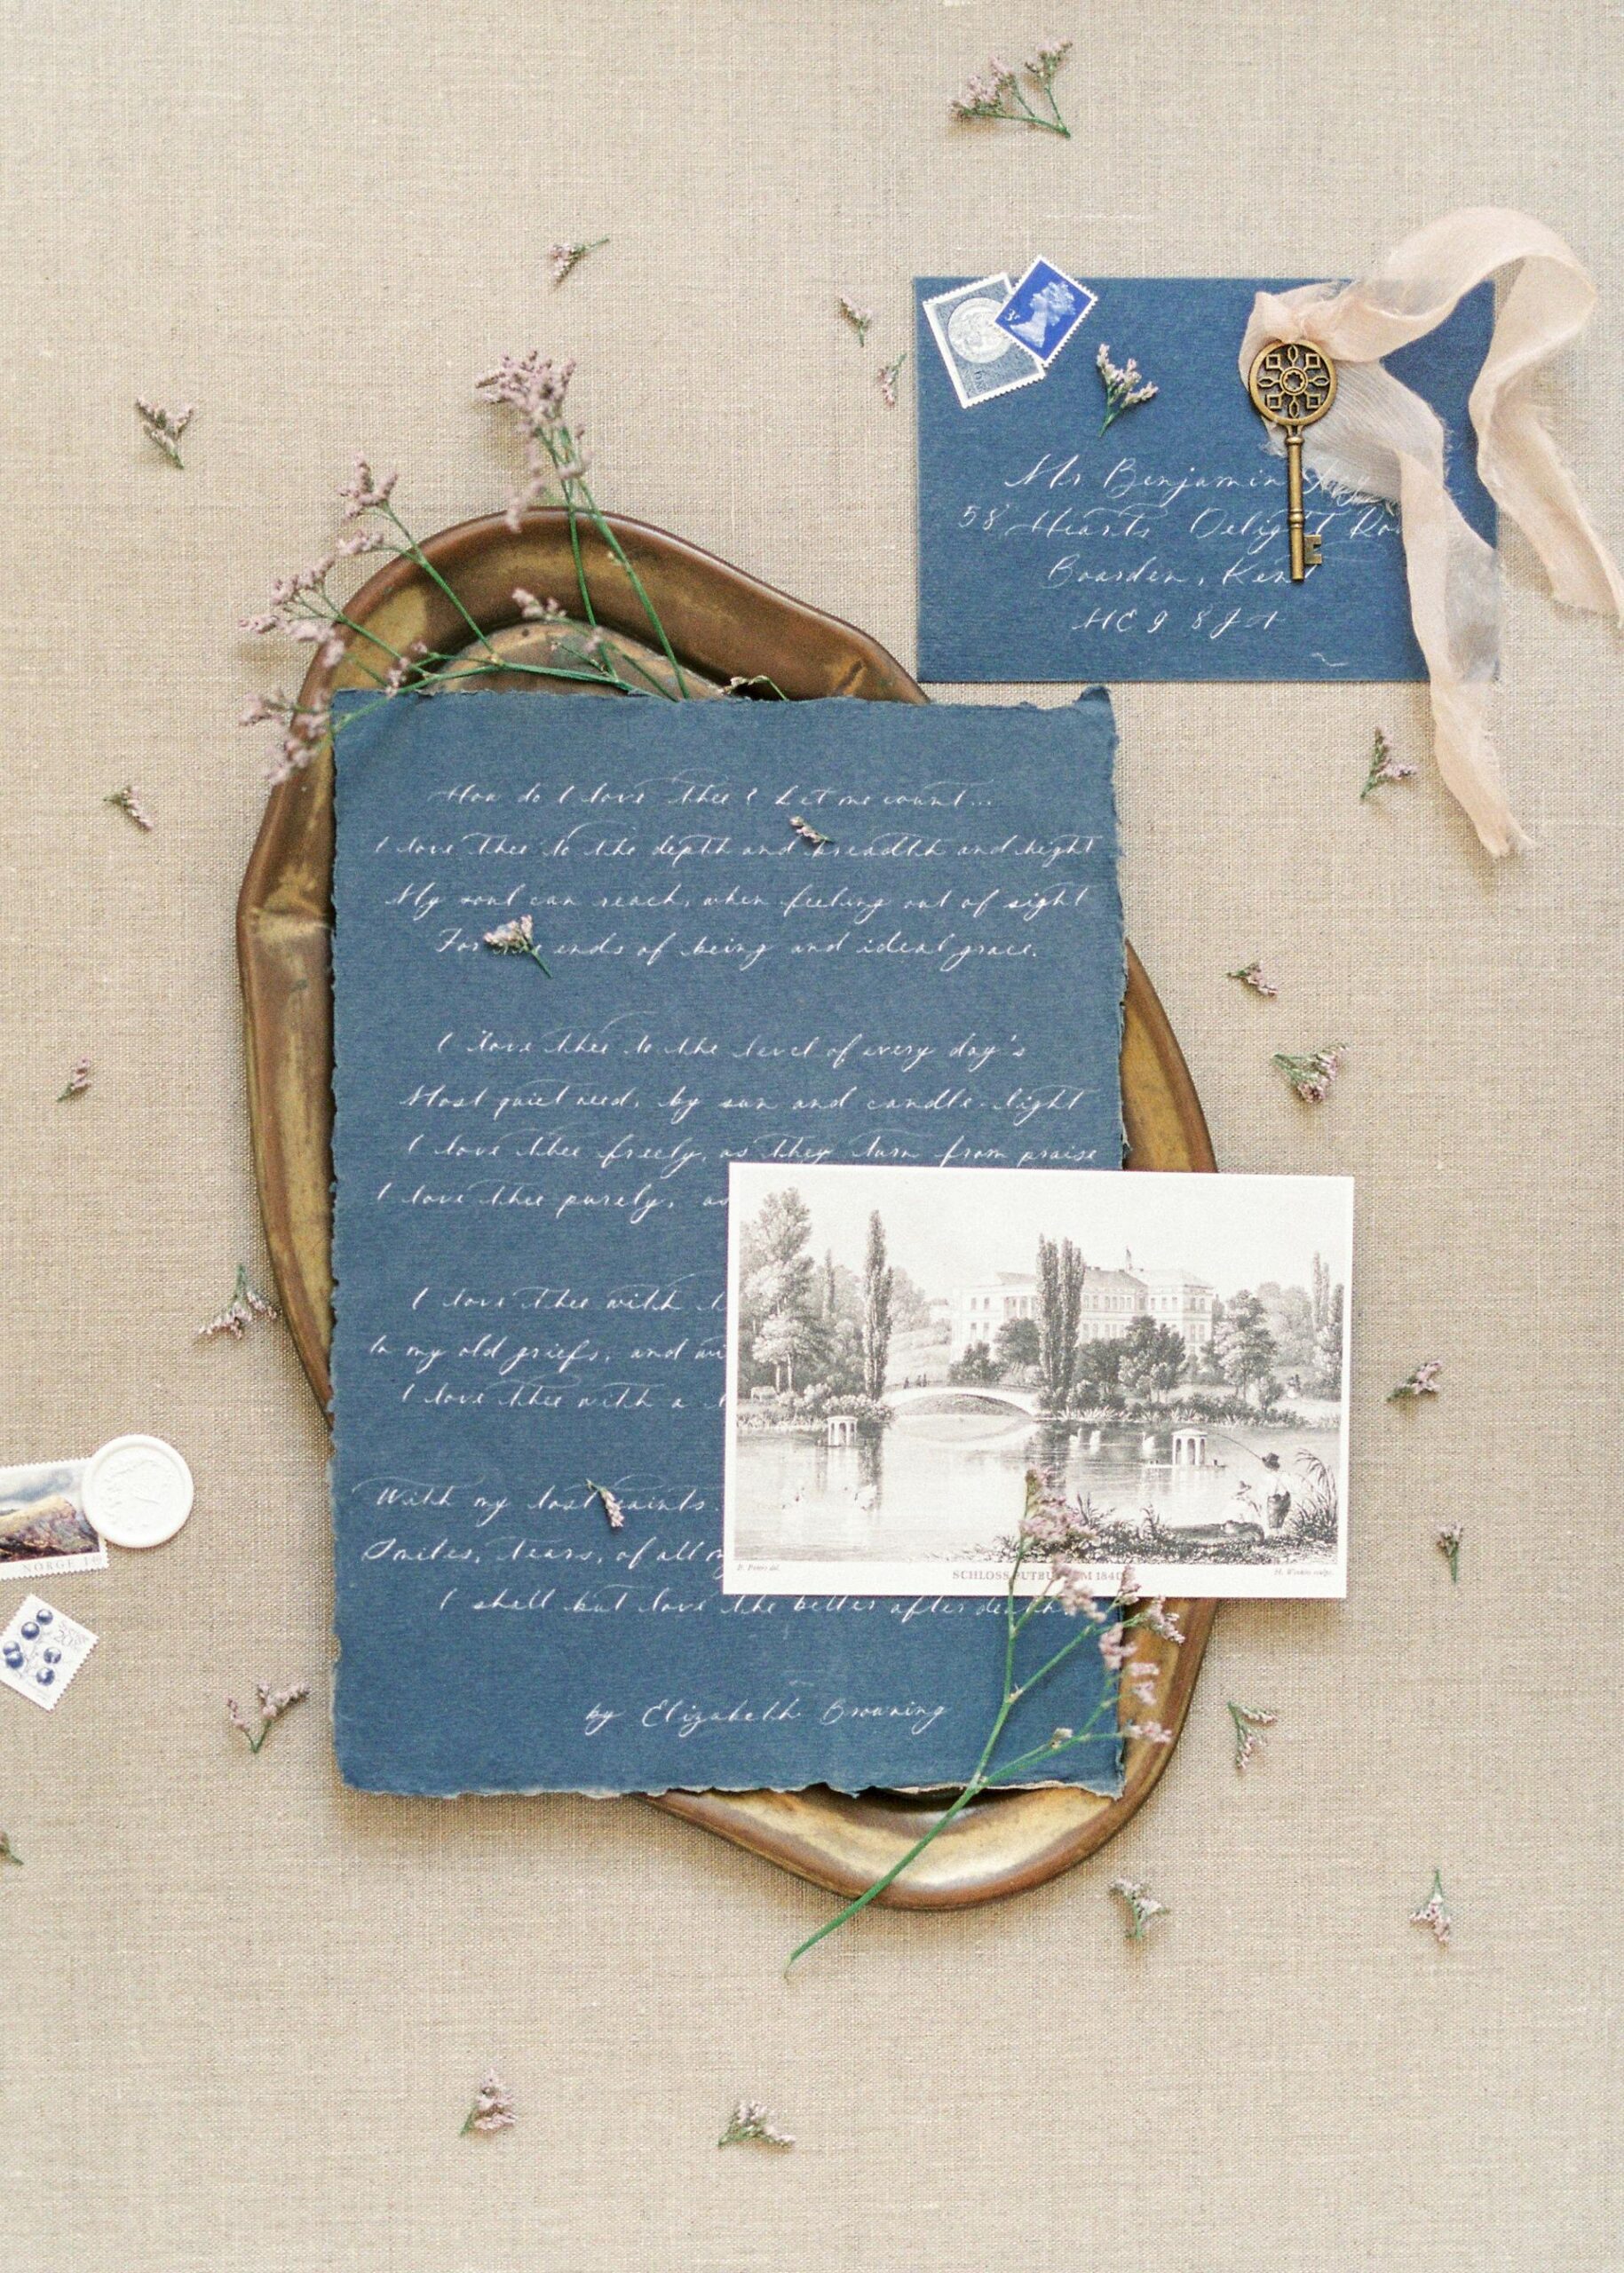 3p
Mr Benjamin
58 Hearts Delight Road
Boarden, Kent
ME9 8JA
How do I love thee? Let me count...
I love thee to the depth and breadth and height
My soul can reach, when feeling out of sight
For the ends of being and ideal grace.
I love thee to the level of every day's
Most quiet need, by sun and candle-light
I love thee freely, as they turn from praise
I love thee purely, as
I love thee with
In my old griefs, and wi
I love thee with a
With my lost saints.
Smiles, tears, of all m
I shall but love the better after death.
by Elizabeth Browning
SCHLOSS RUTRUM 184
NORGE